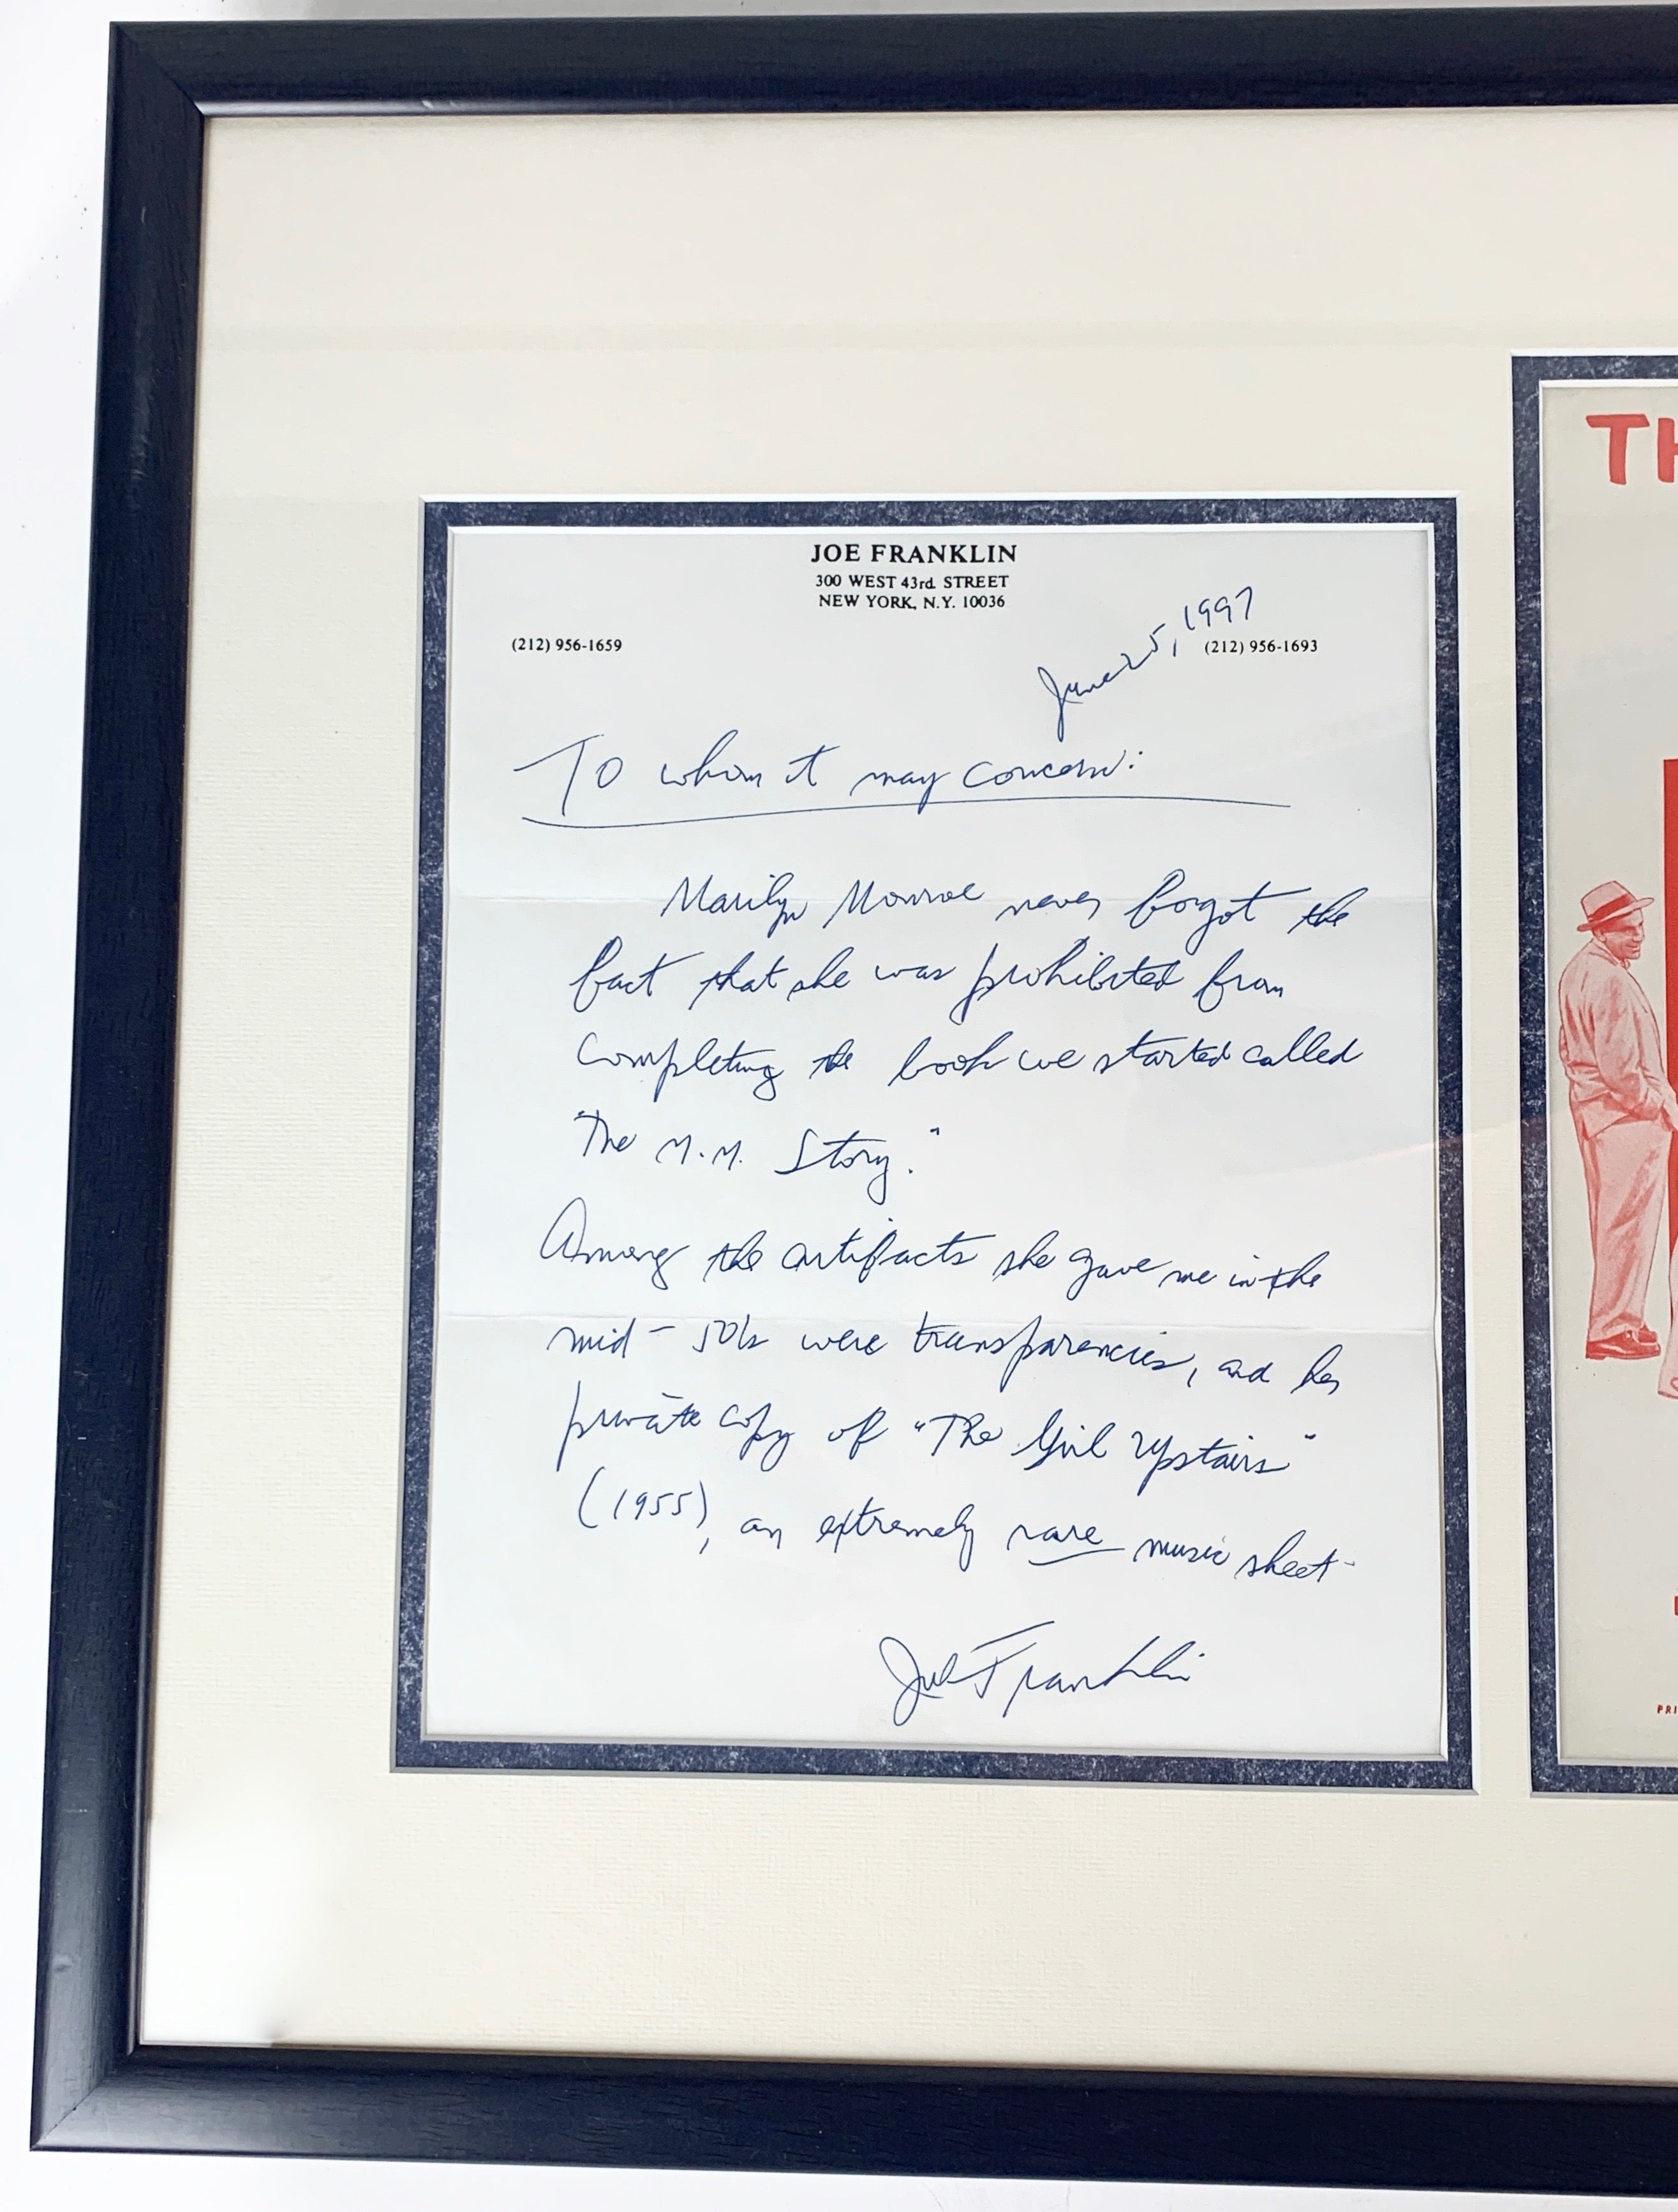 JOE FRANKLIN
300 WEST 43rd. STREET
NEW YORK, N.Y. 10036
(212) 956-1659
(212) 956-1693
June 25, 1997
To whom it may concern:
Marilyn Monroe never forgot the
fact that she was prohibited from
completing the book we started called
"The M.M. Story."
Among the artifacts she gave me in the
mid-50's were transparencies, and her
private copy of "The Girl Upstairs"
(1955), an extremely rare music sheet-
Joe Franklin
TH
PRI